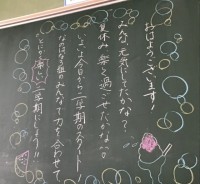 おはようございます！
みんな元気にしてたかな？
夏休み楽しく過ごせたかな。
いよいよ今日から二学期のスタート！
組のみんなで力を合わせて、
楽しい二学期にしよう!!